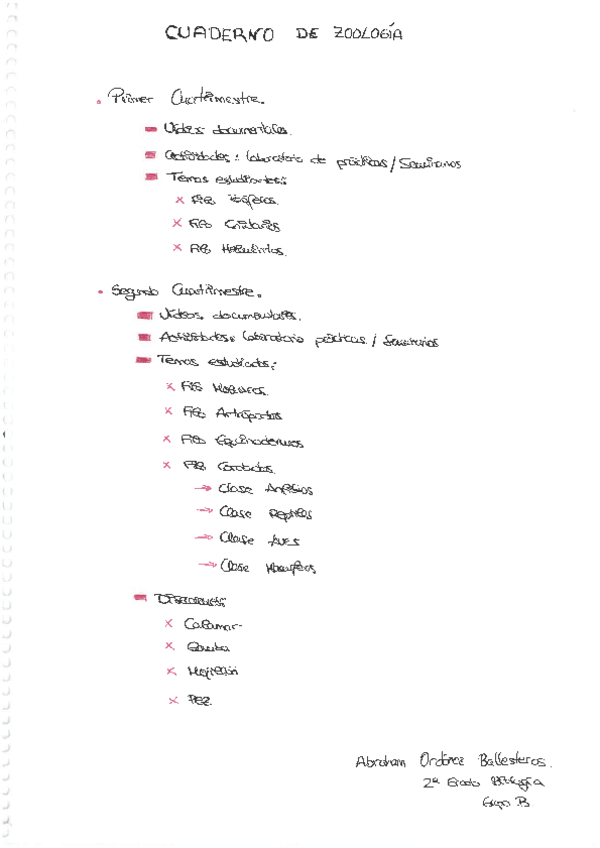 CUADERNO DE ZOOLOGÍA
Primer Cuatrimestre.
Vídeos documentales.
Actividades: Laboratorio de prácticas / Seminarios
Temas estudiantes:
Filo
Filo Cnidarios
Filo
Segundo Cuatrimestre.
Vídeos documentales.
Actividades: Laboratorio prácticas / Seminarios
Temas estudiados:
Filo Moluscos.
Filo Artrópodos
Filo Equinodermos
Filo Cordados.
Clase Anfibios
Clase Reptiles
Clase Aves
Clase Mamíferos
Calamar
Gamba
Mejillón
Pez.
Abraham Ordóñez Ballesteros.
2º Grado Biología
Grupo B